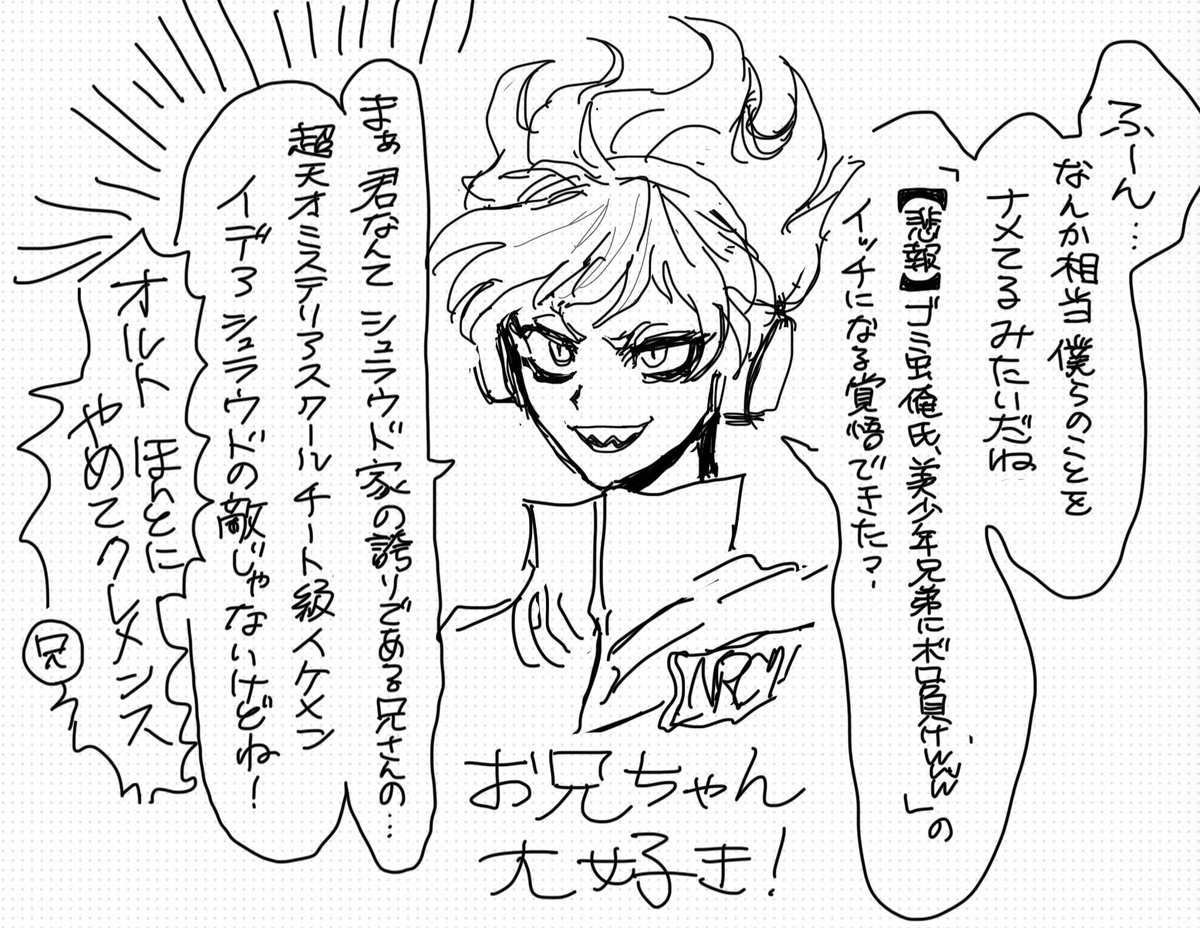 ふーん…
なんか相当僕らのことを
ナメてるみたいだね
「【悲報】ゴミ虫俺氏、美少年兄弟にボロ負けwww」の
イッチになる覚悟できた?
まぁ君なんてシュラウド家の誇りである兄さんの…
超天才ミステリアスクールチート級イケメン
イデアシュラウドの敵じゃないけどね!
オルトほんとに
やめてクレメンス
兄
NRC
お兄ちゃん
大好き!